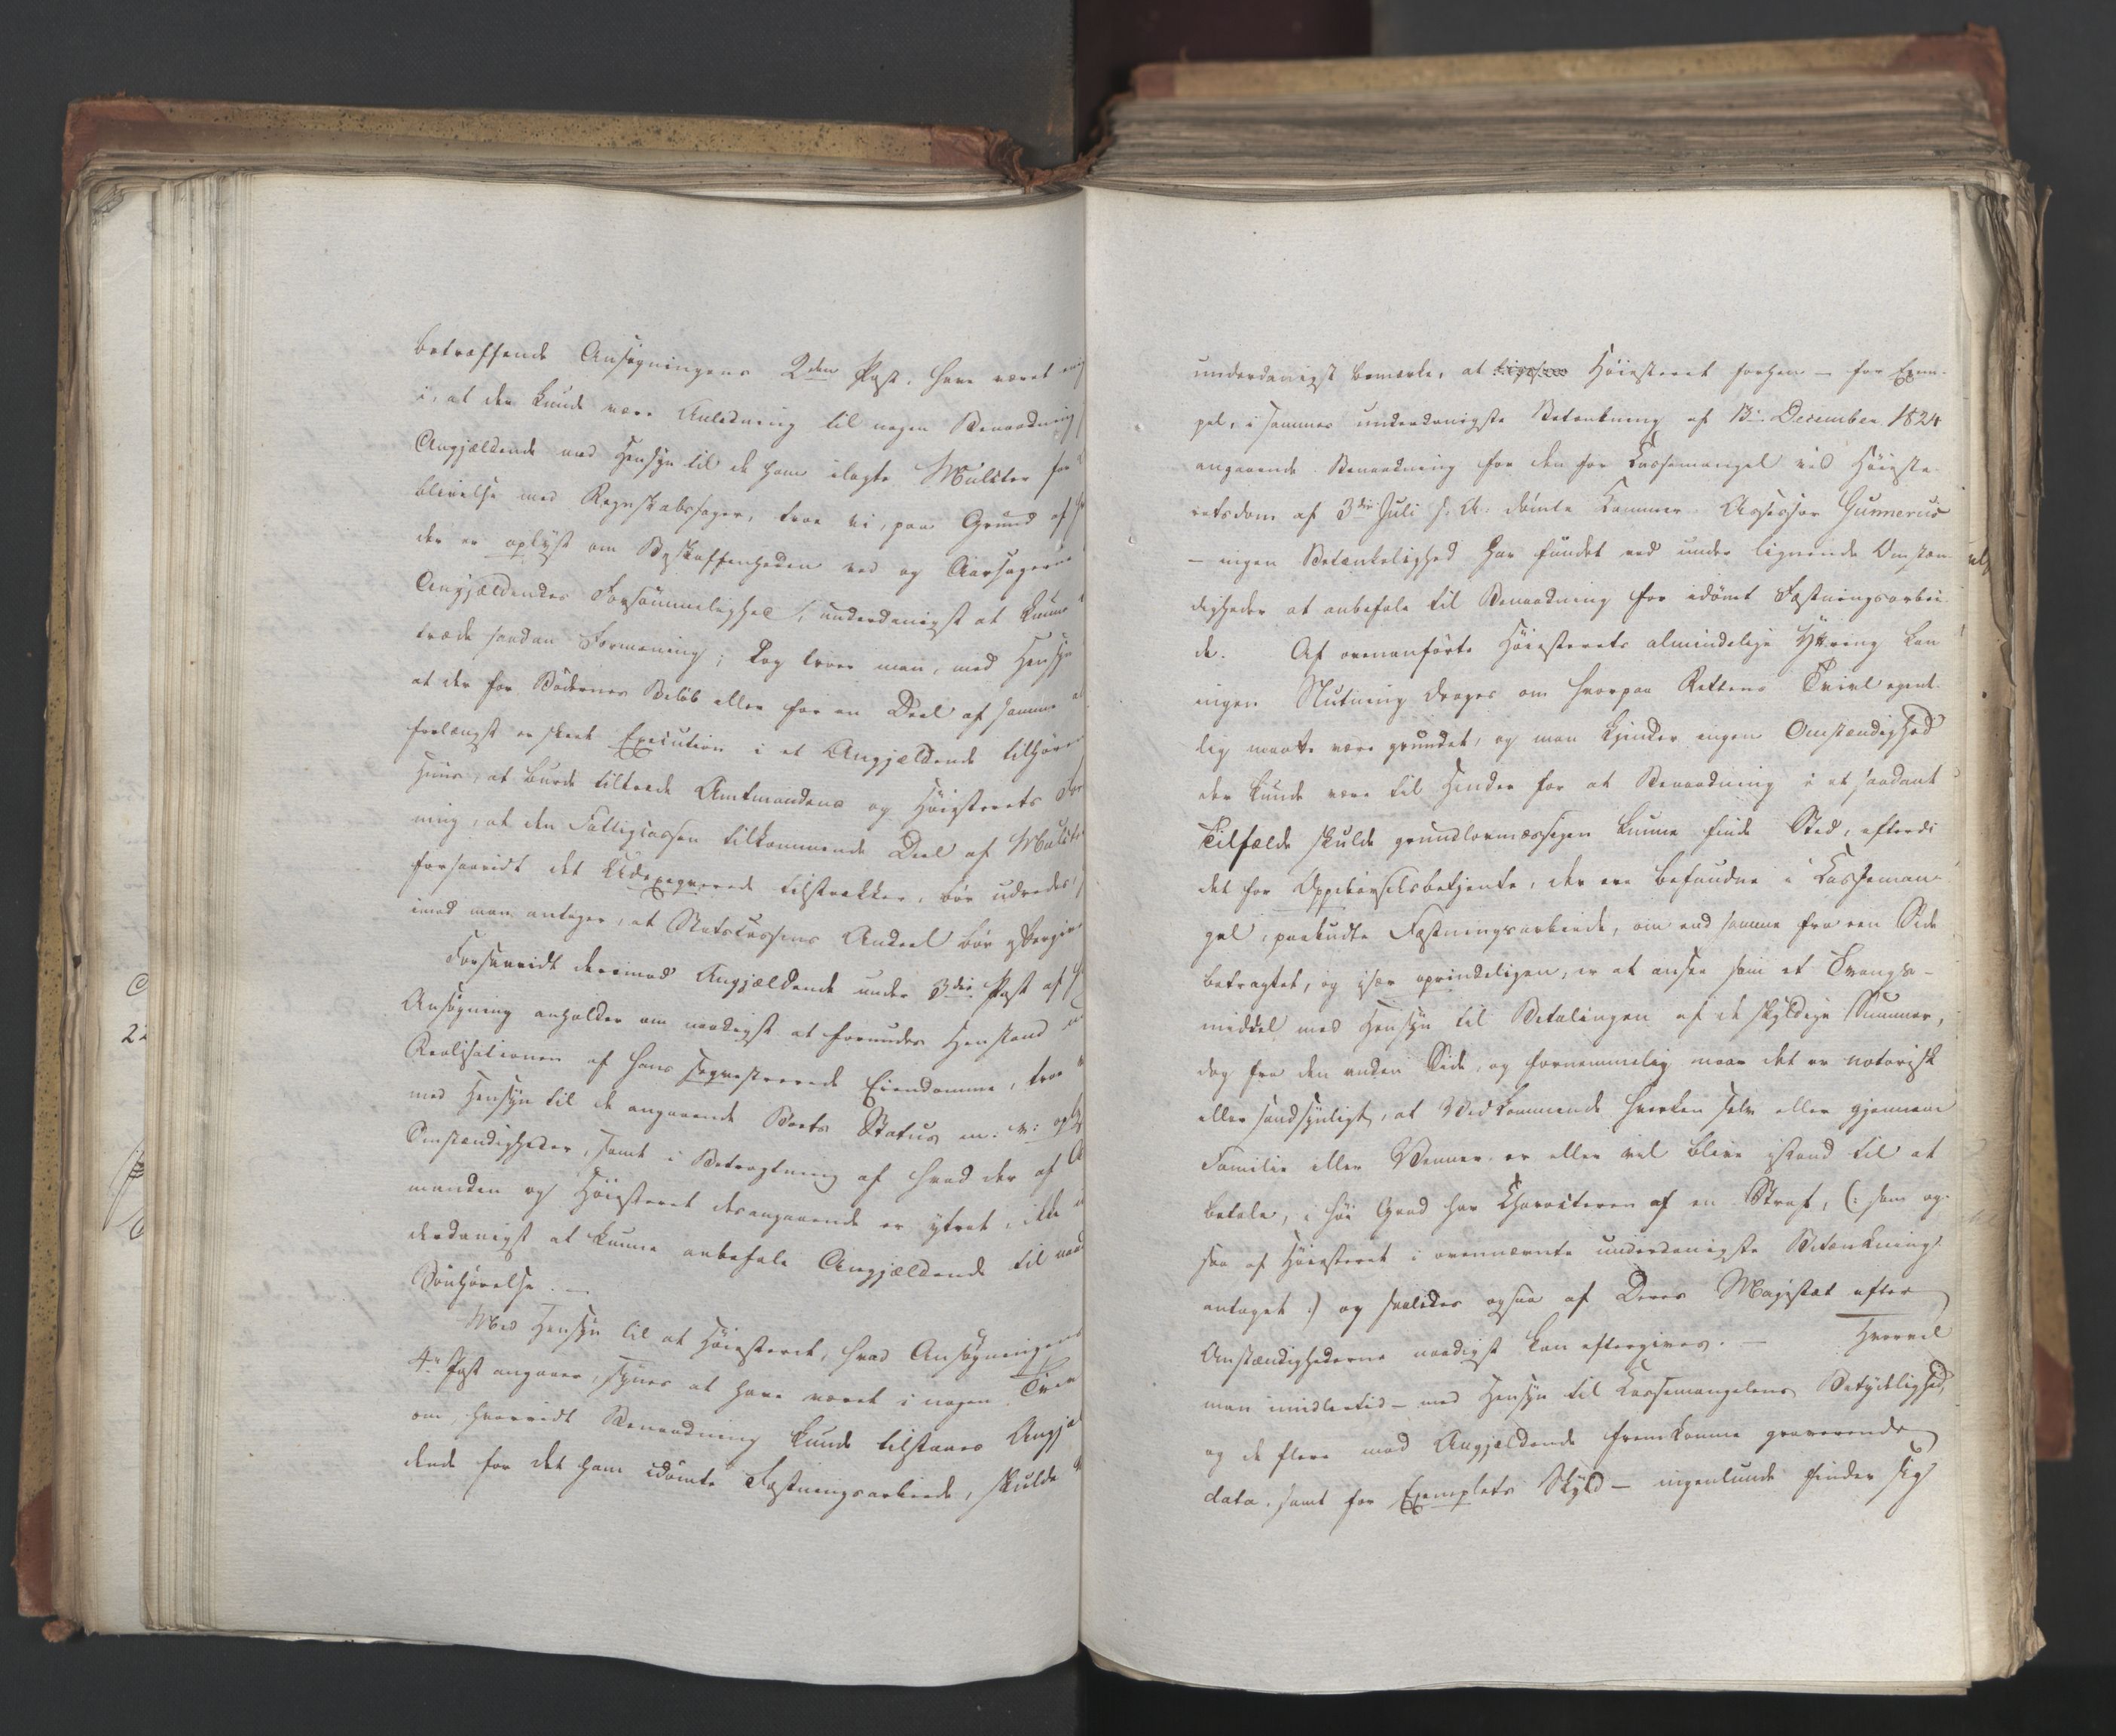 betræffende Ansøgningens 2den Post, have været enig
i, at der kunde være Anledning til nogen Benaadning
Angjældende med Hensyn til de ham ilagte Mulcter for
blivelse med Regnskabssager, troe vi, paa Grund af
der er oplyst om Beskaffenheden ved og Aarsagerne
Angjældendes Forsømmelighed, underdanigst at kunne
træde saadan Formening; dog troer man, med Hensyn
at der for Bødernes Beløb eller for en Deel af samme
forlængst er skeet Execution i et Angjældende tilhøren
Huus, at burde tiltræde Amtmandens og Høiesterets For
ning, at den Fattigcassen tilkommende Deel af Mulct
forsaavidt det Udexeqverede tilstrækker, bør udredes,
imod man antager, at Statscassens Andeel bør eftergives
Forsaavidt derimod Angjældende under 3die Post af
Ansøgning anholder om naadigst at forundes Henstand
Realisationen af hans seqvestrerede Eiendomme, troe
med Hensyn til de angaaende Boets Status m: v: opl
Omstændigheder, samt i Betragtning af hvad der af A
manden og Høiesteret desangaaende er yttret, ikke
derdanigst at kunne anbefale Angjældende til naad
Bønhørelse. —
Med Hensyn til at Høiesteret, hvad Ansøgningens
4de Post angaaer, synes at have været i nogen Tvivl
om, hvorvidt Benaadning kunde tilstaaes Angjæl
dende for det ham idømte Fæstningsarbeide, skulde
underdanigst bemærke, at Høiesteret forhen — for Exem-
pel, i sammes underdanigste Betænkning af 13de December 1824
angaaende Benaadning for den for Kassemangel ved Høieste-
retsdom af 3die Juli s. A. dømte Kammer-Assessor Gunnerus
— ingen Betænkelighed har fundet ved under lignende Omstæn-
digheder at anbefale til Benaadning for idømt Fæstningsarbei-
de. Af ovenanførte Høiesterets almindelige Yttring kan
ingen Slutning drages om hvorpaa Rettens Tvivl egent-
lig maatte være grundet, og man kjender ingen Omstændighed
der kunde være til Hinder for at Benaadning i et saadant
Tilfælde skulde grundlovmæssigen kunne finde Sted, efterdi
det for Oppebørselsbetjente, der ere befundne i Kasseman-
gel, paabudte Fæstningsarbeide, om end samme fra een Side
betragtet, og især oprindeligen, er at ansee som et Tvangs-
middel med Hensyn til Betalingen af de skyldige Summer,
dog fra den anden Side, og fornemmelig naar det er notorisk
eller sandsynligt, at Vedkommende hverken selv eller gjennem
Familie eller Venner er eller vil blive istand til at
betale, i høi Grad har Charakteren af en Straf, (: som og-
saa af Høiesteret i ovennævnte underdanigste Betænkning
antaget :) og saaledes ogsaa af Deres Majestæt efter
Omstændighederne naadigst kan eftergives. — Hvorvel
man imidlertid — med Hensyn til Kassemangelens Betydelighed,
og de flere mod Angjældende fremkomne graverende
data, samt for Exemplets Skyld — ingenlunde finder sig